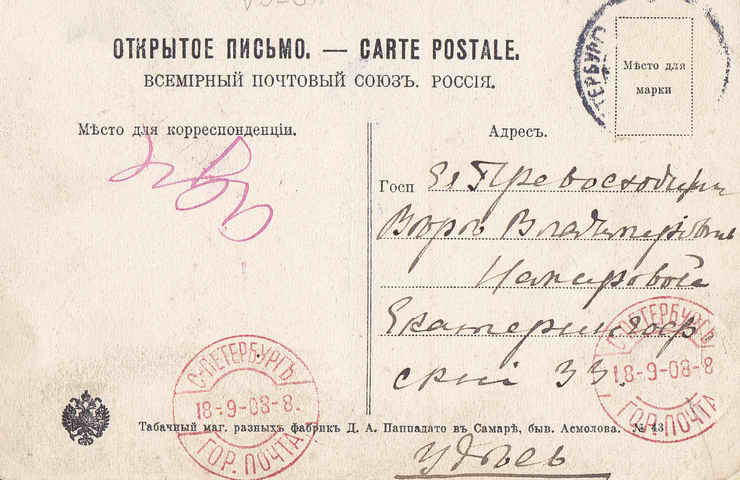 ОТКРЫТОЕ ПИСЬМО. — CARTE POSTALE.
ВСЕМІРНЫЙ ПОЧТОВЫЙ СОЮЗЪ. РОССІЯ.
ТЕРБУРГ
Мѣсто для
марки
Мѣсто для корреспонденціи.
Адресъ.
Госп Ея Превосходит
Вѣрѣ Владимировнѣ
Екатерингоф
скій 33.
С-ПЕТЕРБУРГЪ
18-9-08-8.
ГОР. ПОЧТА
С-ПЕТЕРБУРГЪ
18-9-08-8
ГОР. ПОЧТА
Табачный маг. разныхъ фабрикъ Д. А. Паппадато въ Самарѣ, быв. Асмолова. № 43